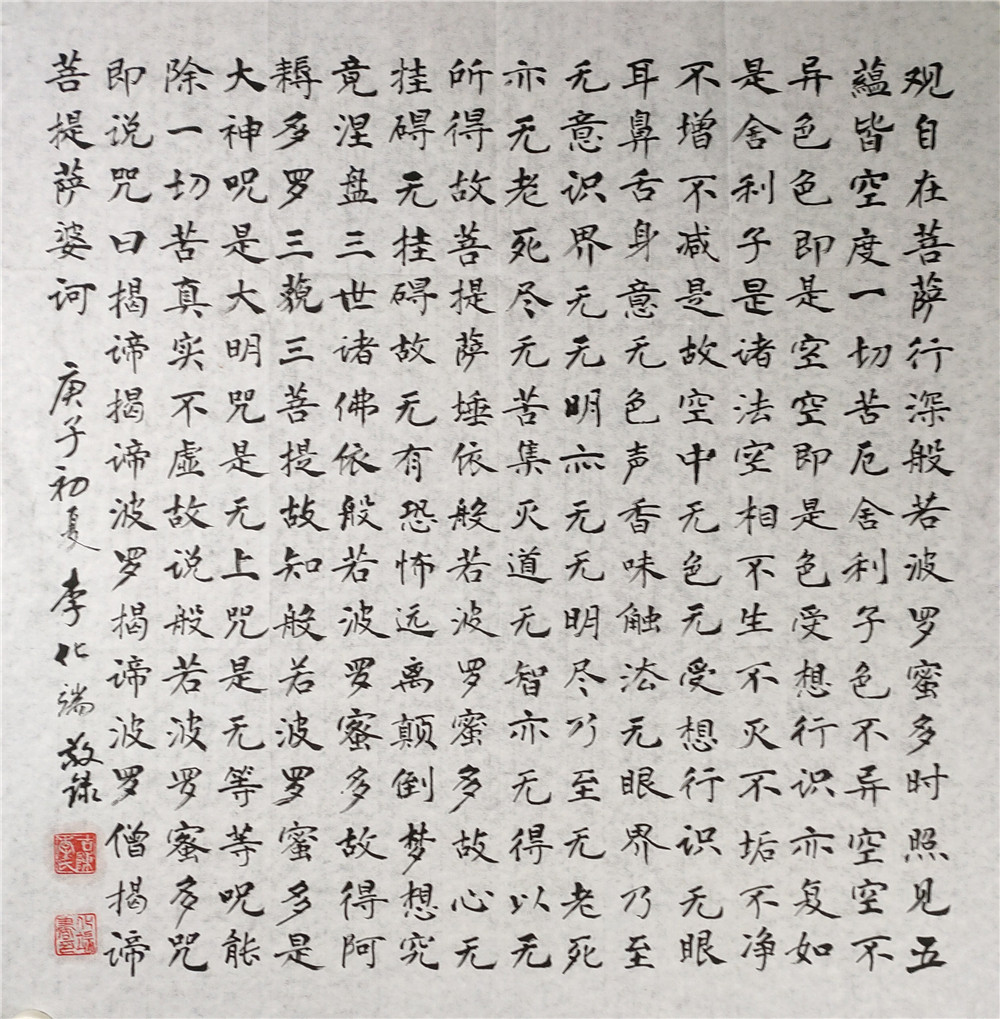 观自在菩萨行深般若波罗蜜多时照见五
蘊皆空度一切苦厄舍利子色不异空空不
异色色即是空空即是色受想行识亦复如
是舍利子是诸法空相不生不灭不垢不净
不增不减是故空中无色无受想行识无眼
耳鼻舌身意无色声香味触法无眼界乃至
无意识界无无明亦无无明尽乃至无老死
亦无老死尽无苦集灭道无智亦无得以无
所得故菩提萨埵依般若波罗蜜多故心无
挂碍无挂碍故无有恐怖远离颠倒梦想究
竟涅盘三世诸佛依般若波罗蜜多故得阿
耨多罗三藐三菩提故知般若波罗蜜多是
大神咒是大明咒是无上咒是无等等咒能
除一切苦真实不虚故说般若波罗蜜多咒
即说咒曰揭谛揭谛波罗揭谛波罗僧揭谛
菩提萨婆诃 庚子初夏 李化端敬录